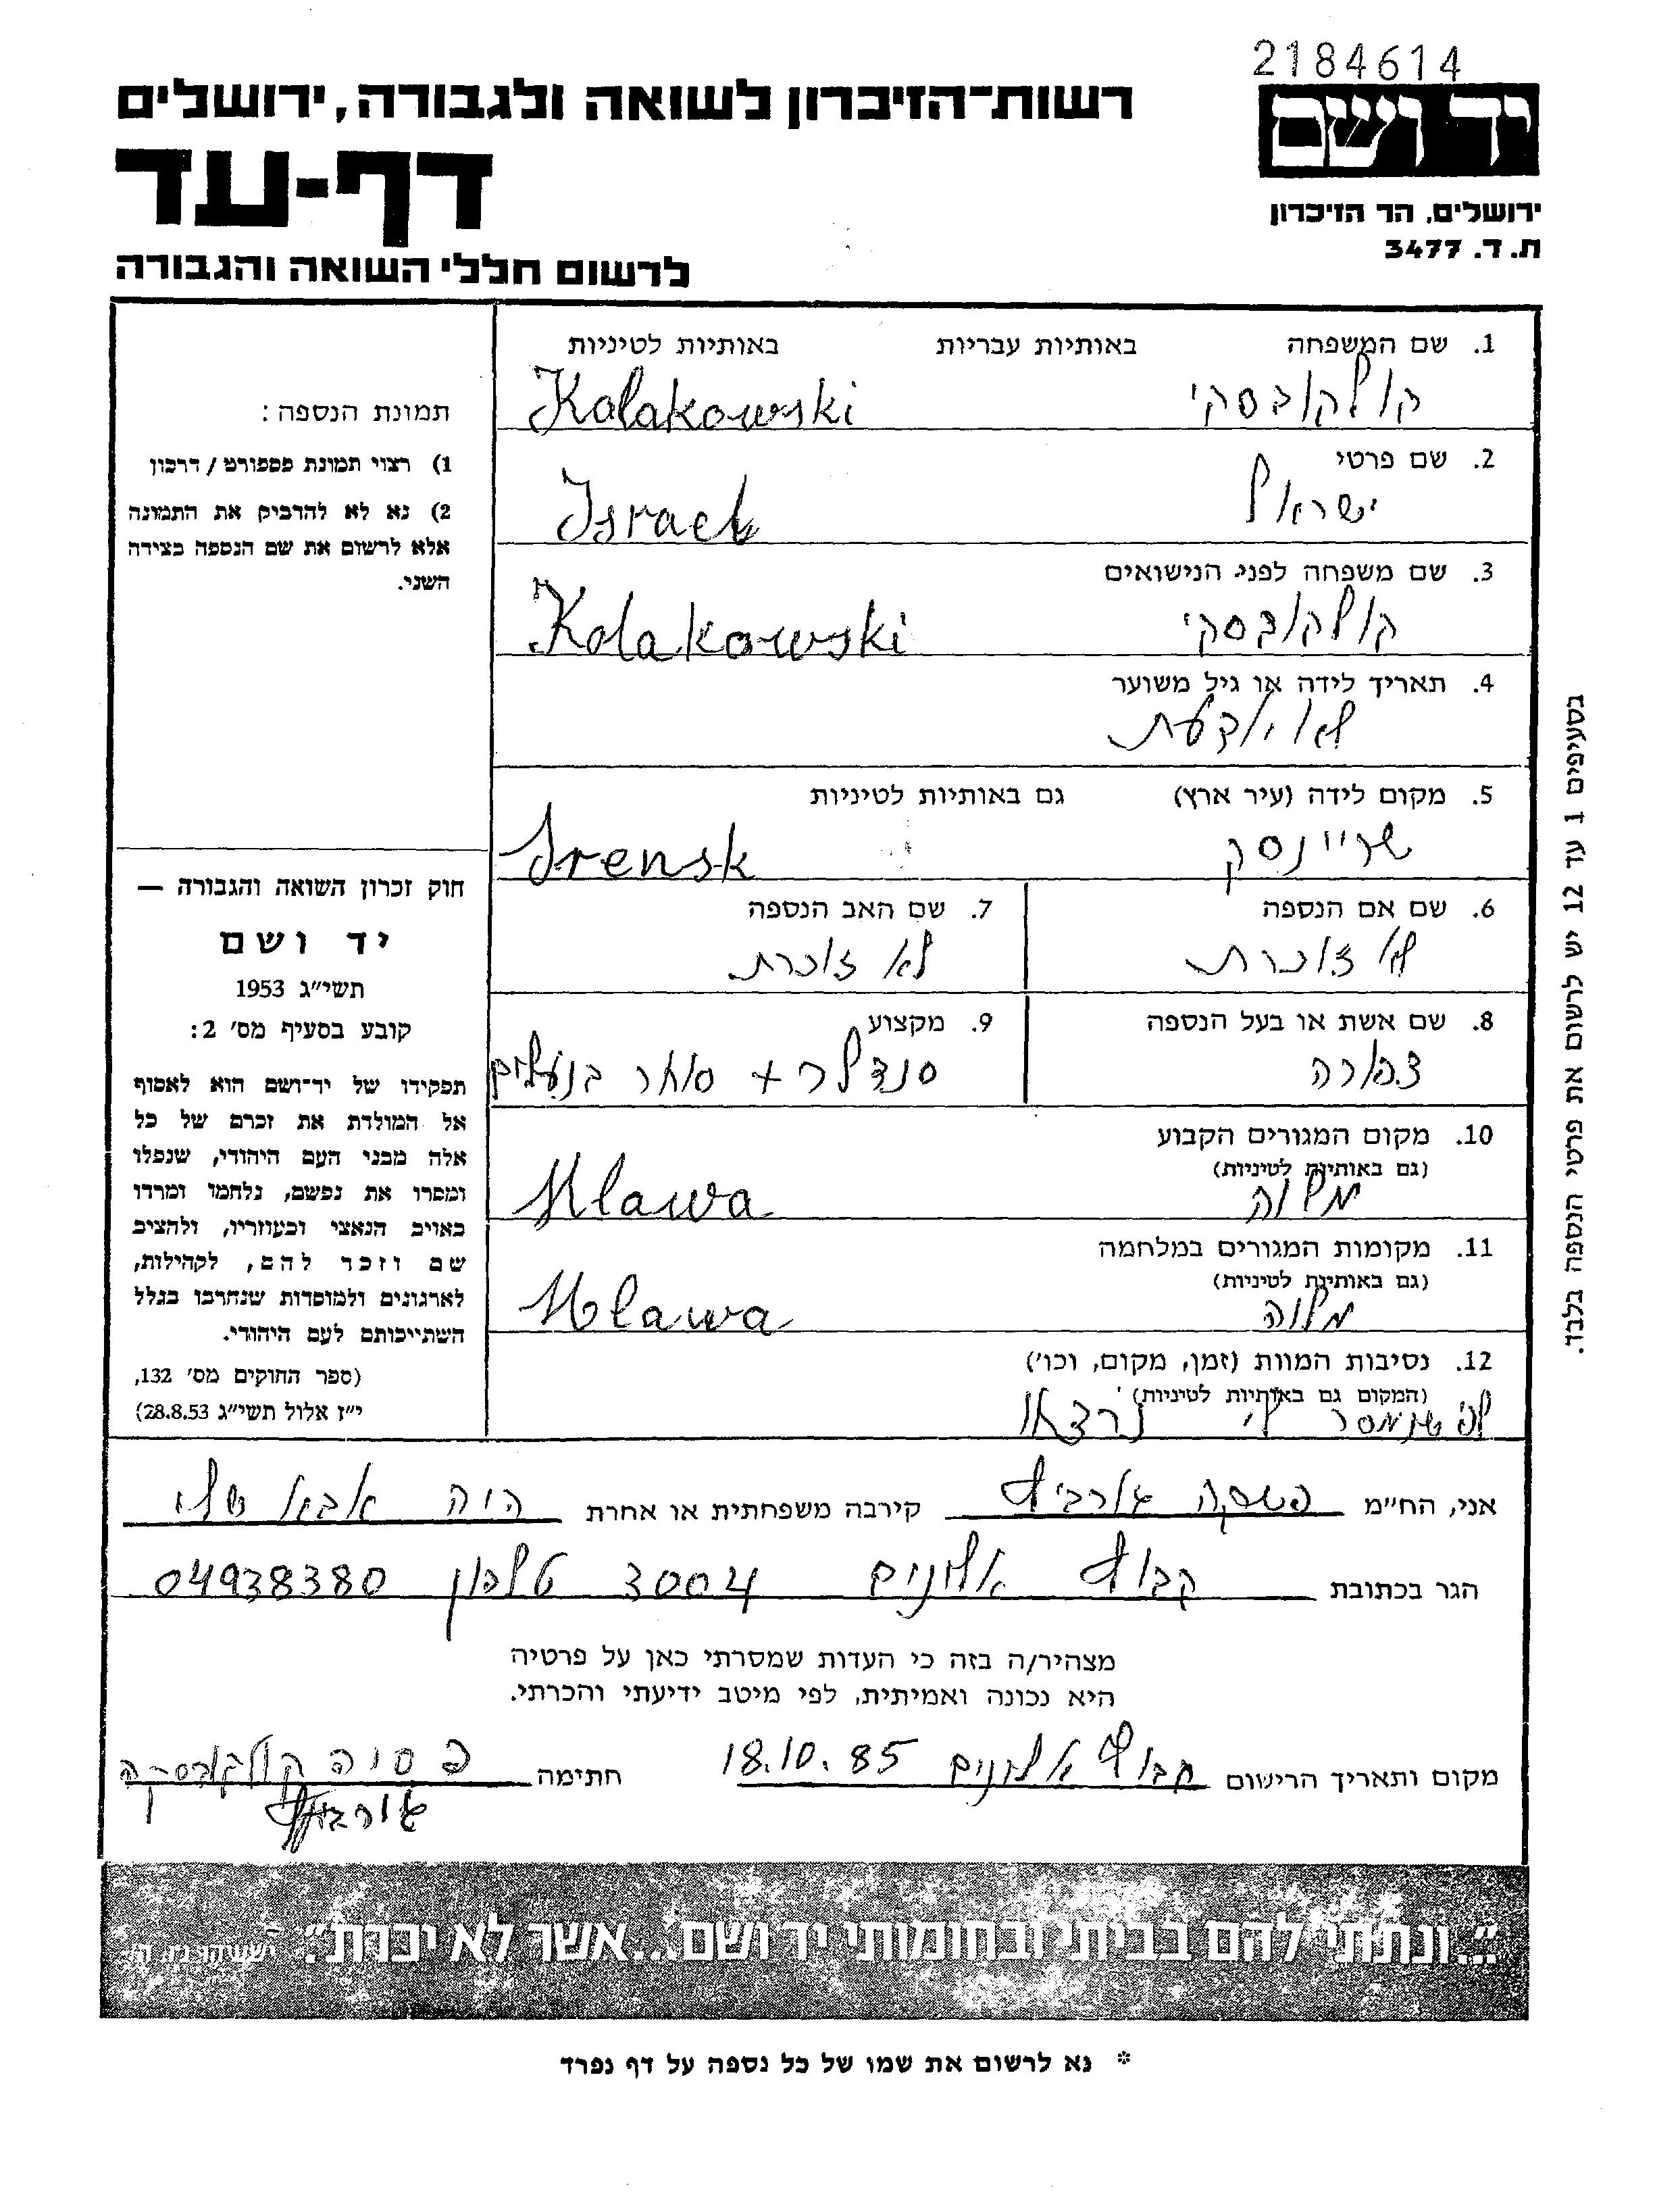 2184614
יד ושם
ירושלים, הר הזיכרון
ת. ד. 3477
רשות־הזיכרון לשואה ולגבורה, ירושלים
דף-עד
לרשום חללי השואה והגבורה
1. שם המשפחה באותיות עבריות באותיות לטיניות
קולקובסקי Kolakowski
2. שם פרטי
ישראל Israel
3. שם משפחה לפני הנישואים
קולקובסקי Kolakowski
4. תאריך לידה או גיל משוער
לא יודעת
5. מקום לידה (עיר ארץ) גם באותיות לטיניות
שריינסק Srensk
6. שם אם הנספה
לא זוכרת
7. שם האב הנספה
לא זוכרת
8. שם אשת או בעל הנספה
צפורה
9. מקצוע
סנדלר + סוחר בנעלים
10. מקום המגורים הקבוע
(גם באותיות לטיניות)
מלוה Mlawa
11. מקומות המגורים במלחמה
(גם באותיות לטיניות)
מלוה Mlawa
12. נסיבות המוות (זמן, מקום, וכו')
(המקום גם באותיות לטיניות)
לפי שנמסר לי נרצחו
תמונת הנספה:
1) רצוי תמונת פספורט / דרכון
2) נא לא להדביק את התמונה
אלא לרשום את שם הנספה בצידה
השני.
חוק זכרון השואה והגבורה —
יד ושם
תשי״ג 1953
קובע בסעיף מס' 2:
תפקידו של יד־ושם הוא לאסוף
אל המולדת את זכרם של כל
אלה מבני העם היהודי, שנפלו
ומסרו את נפשם, נלחמו ומרדו
באויב הנאצי ובעוזריו, ולהציב
שם וזכר להם, לקהילות,
לארגונים ולמוסדות שנחרבו בגלל
השתייכותם לעם היהודי.
(ספר החוקים מס' 132,
י״ז אלול תשי״ג 28.8.53)
בסעיפים 1 עד 12 יש לרשום את פרטי הנספה בלבד.
אני, הח״מ קירבה משפחתית או אחרת היה אבא שלי
הגר בכתובת קבוץ אלונים 3004 טלפון 04938380
מצהיר/ה בזה כי העדות שמסרתי כאן על פרטיה
היא נכונה ואמיתית, לפי מיטב ידיעתי והכרתי.
מקום ותאריך הרישום קבוץ אלונים 18.10.85 חתימה פסיה קולקובסקה
״...ונתתי להם בביתי ובחומותי יד ושם...אשר לא יכרת״. ישעיהו נו, ה׳
* נא לרשום את שמו של כל נספה על דף נפרד